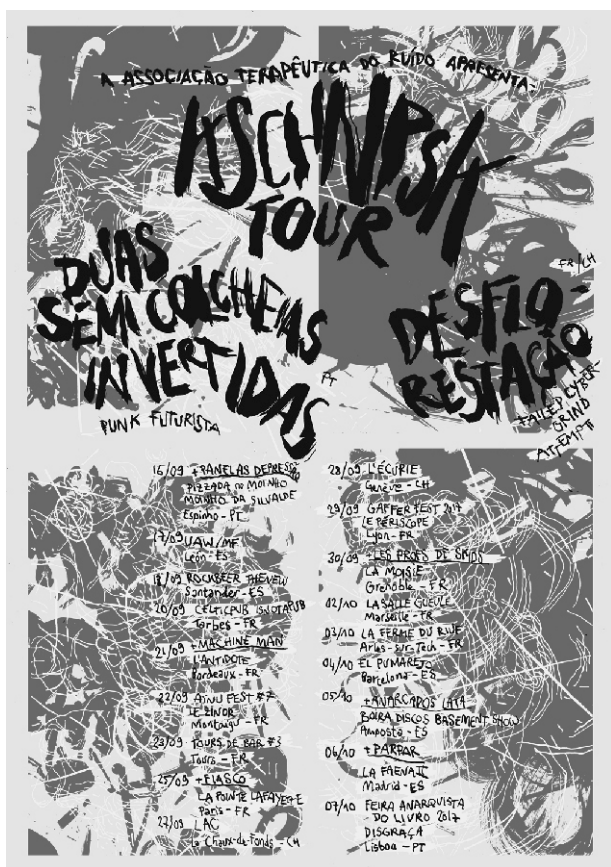 A ASSOCIAÇÃO TERAPÊUTICA DO RUÍDO APRESENTA:
KSCHNIPSK
TOUR
DUAS
SEMICOLCHEIAS
INVERTIDAS
PT
PUNK FUTURISTA
FR/CH
DESFLO-
RESTAÇÃO
FAILED CYBER-
GRIND
ATTEMPT
16/09 +PANELAS DEPRESSÃO
PIZZADA NO MOINHO
MOINHO DA SILVALDE
Espinho - PT
17/09 UAW/MF
León - ES
18/09 ROCKBEER THE NEW
Santander - ES
20/09 CELTICPUB
Tarbes - FR
21/09 +MACHINE MAN
L'ANTIDOTE
Bordeaux - FR
22/09 AINU FEST #7
LE ZINOR
Montaigu - FR
23/09 TOURS DE BAR #3
Tours - FR
25/09 +FIASCO
LA POINTE LAFAYETTE
Paris - FR
27/09 LAC
La Chaux-de-Fonds - CH
28/09 L'ÉCURIE
Genève - CH
29/09 GAFFER FEST 2017
LE PÉRISCOPE
Lyon - FR
30/09 +LES PROFS DE SKIDS
LA MOISIE
Grenoble - FR
02/10 LA SALLE GUEULE
Marseille - FR
03/10 LA FERME DU RUE
Arles-sur-Tech - FR
04/10 EL PUMAREJO
Barcelona - ES
05/10 +ANARCAPOS LATA
BOIRA DISCOS BASEMENT SHOW
Amposta - ES
06/10 +PARPAR
LA FAENA II
Madrid - ES
07/10 FEIRA ANARQUISTA
DO LIVRO 2017
DISGRAÇA
Lisboa - PT